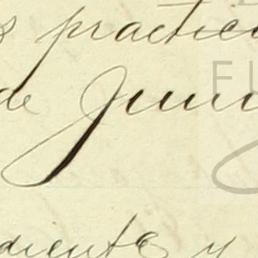 s practica
de Juni
diente y